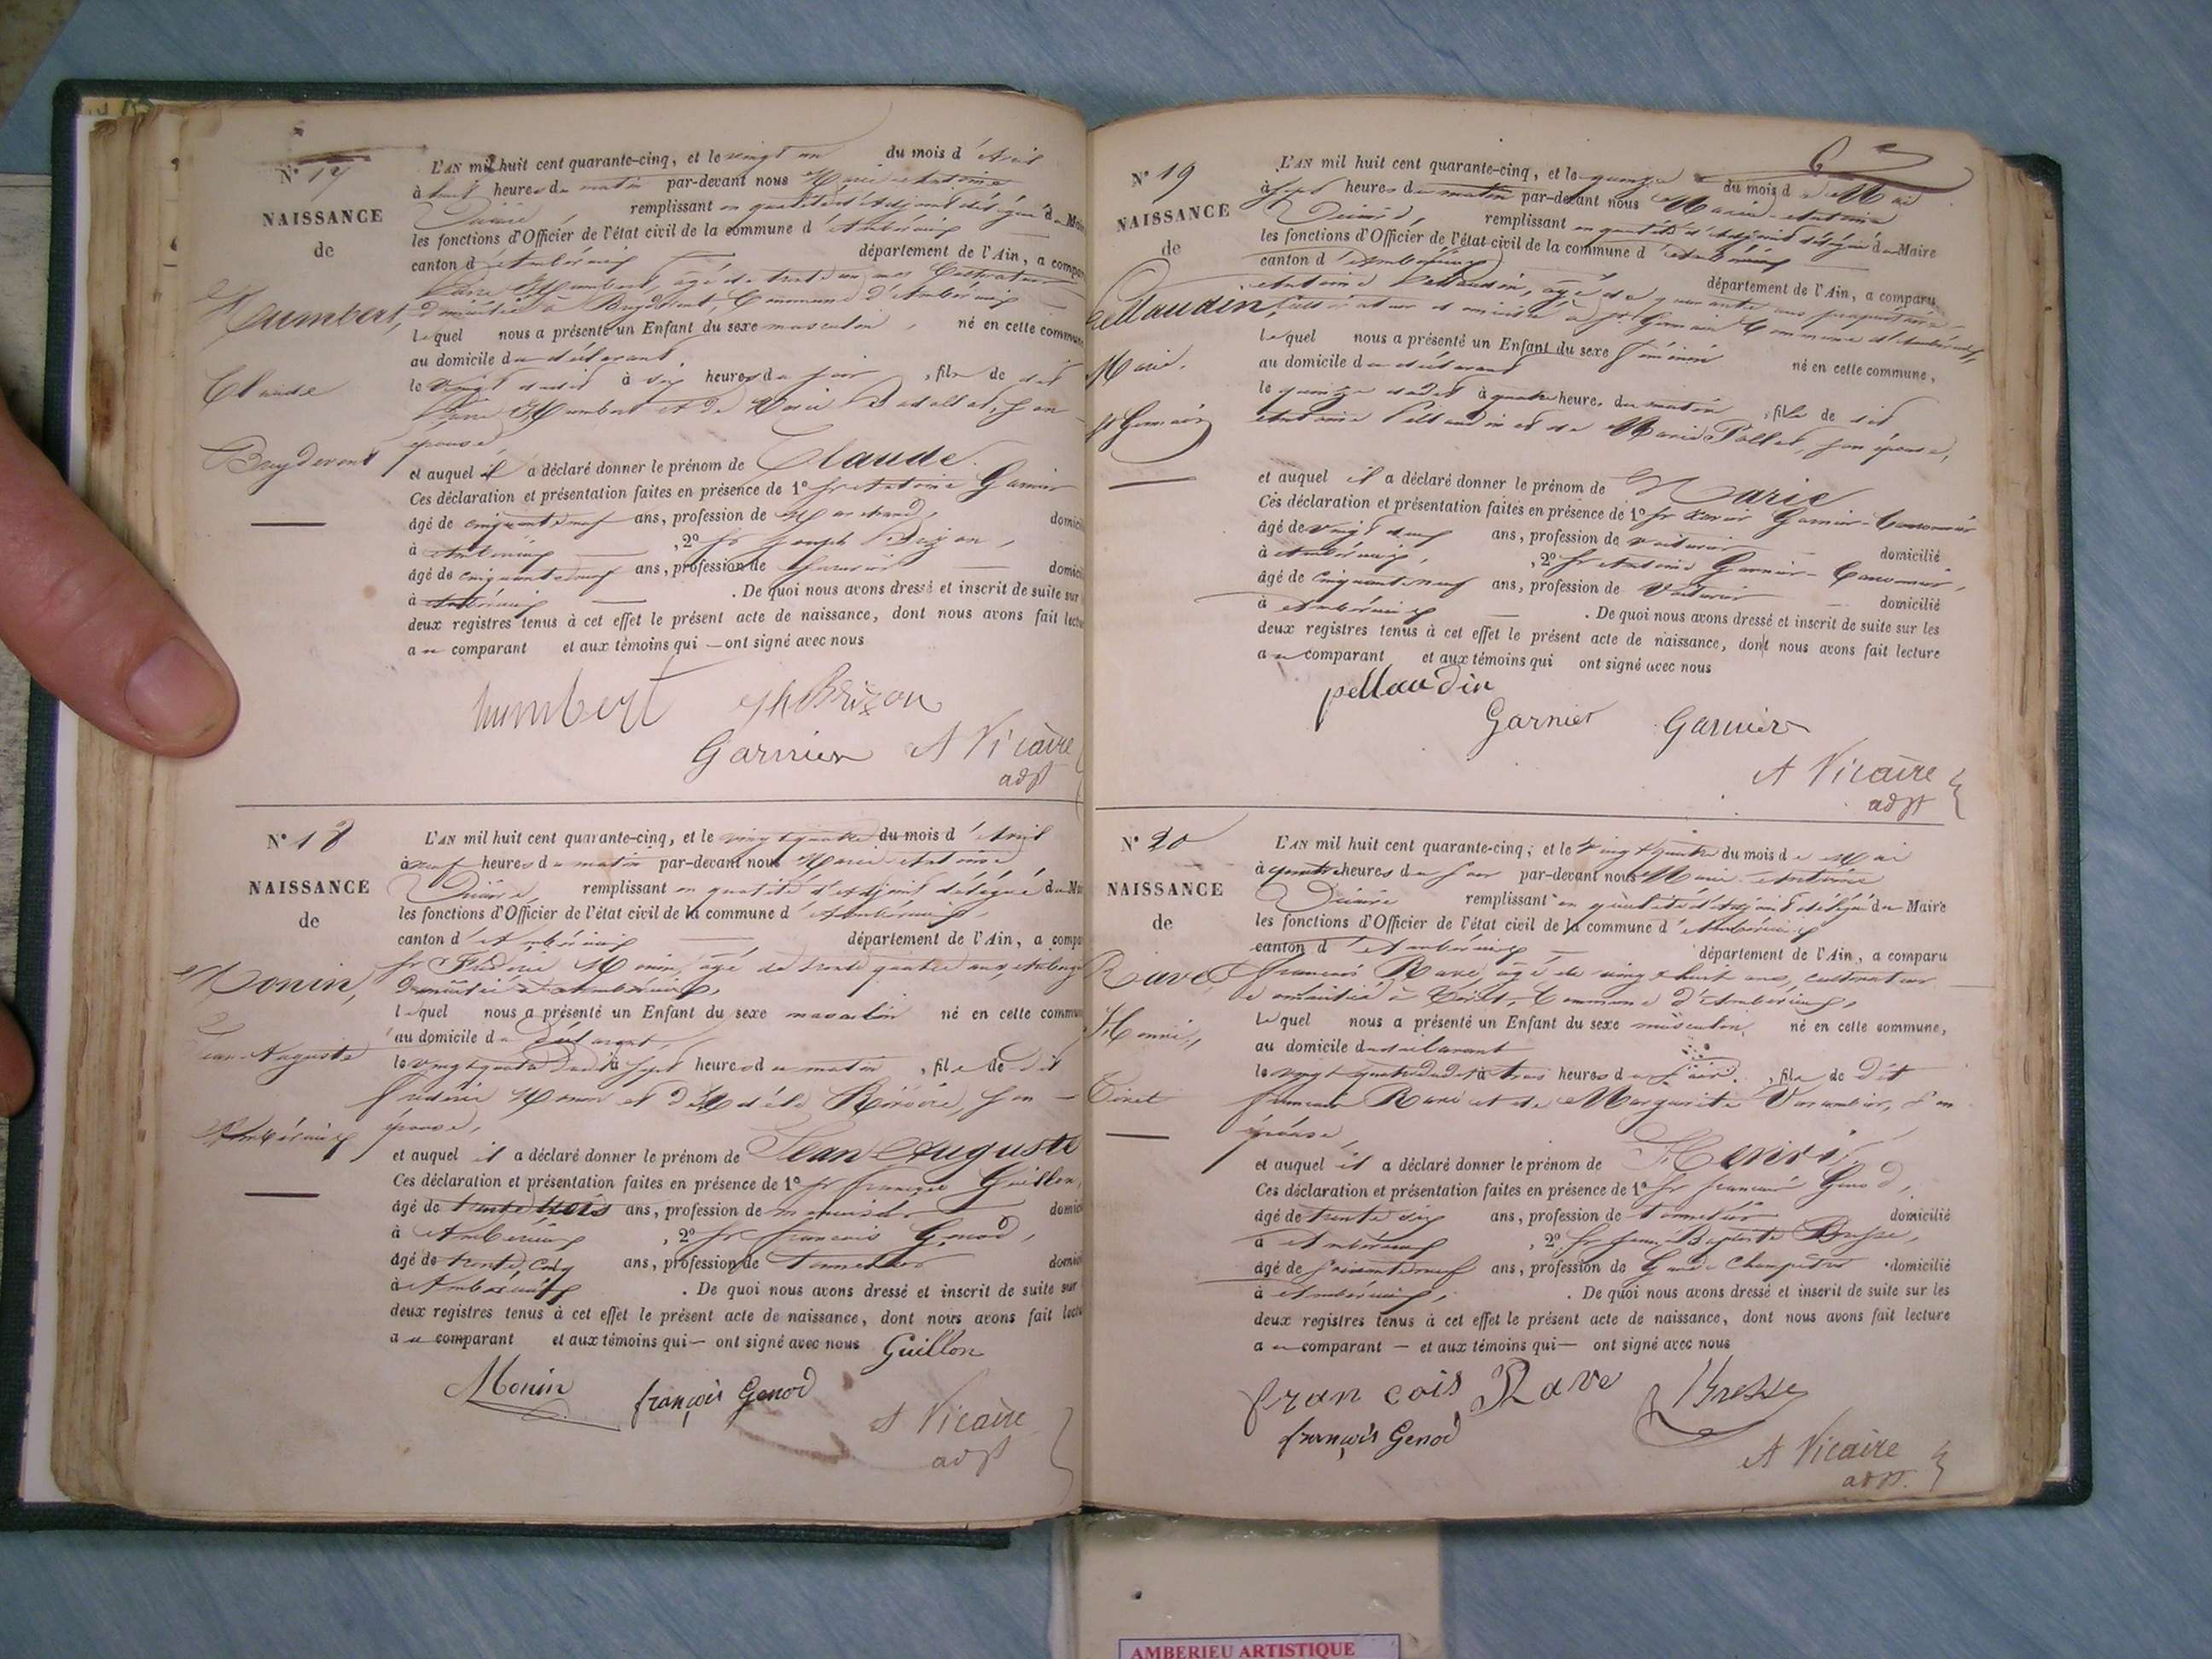 N° 17
NAISSANCE
de
Humbert,
Claude
Breydevent
L'AN mil huit cent quarante-cinq, et le vingt un du mois d'Avril
à huit heures du matin par-devant nous Marie Antoine
Vicaire, remplissant en qualité d'adjoint délégué du Maire
les fonctions d'Officier de l'état civil de la commune d'Ambérieux
canton d'Ambérieux département de l'Ain, a compa
Humbert, âgé de trente un ans Cultivateur
domicilié à Breydevent, Commune d'Ambérieux
lequel nous a présenté un Enfant du sexe masculin, né en cette commune
au domicile du déclarant,
le vingt dudit à six heures du soir, fils de dit
Humbert et de Marie, son
épouse
et auquel il a déclaré donner le prénom de Claude.
Ces déclaration et présentation faites en présence de 1° sr Antoine Garnier
âgé de cinquante neuf ans, profession de Marchand, domici
à Ambérieux, 2° sr Joseph Brizon,
âgé de cinquante neuf ans, profession de domici
à Ambérieux. De quoi nous avons dressé et inscrit de suite sur
deux registres tenus à cet effet le présent acte de naissance, dont nous avons fait lectu
au comparant et aux témoins qui — ont signé avec nous
humbert Jh Brizon
Garnier A Vicaire
adjt
N° 18
NAISSANCE
de
Monin,
Jean-Auguste
Ambérieux
L'AN mil huit cent quarante-cinq, et le vingt quatre du mois d'Avril
à neuf heures du matin par-devant nous Marie Antoine
Vicaire, remplissant en qualité d'adjoint délégué du Mai
les fonctions d'Officier de l'état civil de la commune d'Ambérieux,
canton d'Ambérieux département de l'Ain, a compa
sr Frédéric Monin, âgé de trente quatre ans, aubergi
domicilié à Ambérieux,
lequel nous a présenté un Enfant du sexe masculin né en cette commun
au domicile du déclarant,
le vingt quatre dudit à sept heures du matin, fils de dit
frédéric Monin et d'Adèle, son
épouse,
et auquel il a déclaré donner le prénom de Jean-Auguste
Ces déclaration et présentation faites en présence de 1° sr françois Guillon,
âgé de trente trois ans, profession de menuisier domici
à Ambérieux, 2° sr françois Genod,
âgé de trente cinq ans, profession de tonnelier domici
à Ambérieux. De quoi nous avons dressé et inscrit de suite sur
deux registres tenus à cet effet le présent acte de naissance, dont nous avons fait lectu
au comparant et aux témoins qui — ont signé avec nous Guillon
Monin françois Genod
A Vicaire
adjt
N° 19
NAISSANCE
de
Pellaudin,
Marie.
St Germain
L'AN mil huit cent quarante-cinq, et le quinze du mois de Mai
à sept heures du matin par-devant nous Marie-Antoine
Vicaire, remplissant en qualité d'adjoint délégué du Maire
les fonctions d'Officier de l'état civil de la commune d'Ambérieux
canton d'Ambérieux département de l'Ain, a comparu
Antoine Pellaudin, âgé de quarante ans propriétaire
Cultivateur domicilié à St Germain Commune d'Ambérieux,
lequel nous a présenté un Enfant du sexe féminin né en cette commune,
au domicile du déclarant
le quinze dudit à quatre heures du matin, fille de dit
Antoine Pellaudin et de Marie Pollet, son épouse,
et auquel il a déclaré donner le prénom de Marie
Ces déclaration et présentation faites en présence de 1° sr Garnier-
âgé de vingt ans, profession de voiturier domicilié
à Ambérieux, 2° sr Antoine Garnier-
âgé de cinquante neuf ans, profession de Voiturier domicilié
à Ambérieux. De quoi nous avons dressé et inscrit de suite sur les
deux registres tenus à cet effet le présent acte de naissance, dont nous avons fait lecture
au comparant et aux témoins qui ont signé avec nous
pellaudin
Garnier Garnier
A Vicaire
adjt
N° 20
NAISSANCE
de
Ravé
Henri,
Tiret
L'AN mil huit cent quarante-cinq; et le vingt quatre du mois de Mai
à quatre heures du soir par-devant nous Marie Antoine
Vicaire remplissant en qualité d'adjoint délégué du Maire
les fonctions d'Officier de l'état civil de la commune d'Ambérieux
canton d'Ambérieux département de l'Ain, a comparu
françois Ravé, âgé de vingt huit ans, cultivateur
domicilié à Tiret, Commune d'Ambérieux,
lequel nous a présenté un Enfant du sexe masculin, né en cette commune,
au domicile dudit déclarant
le vingt quatre dudit à trois heures du soir, fils de dit
françois Ravé et de Marguerite, son
épouse,
et auquel il a déclaré donner le prénom de Henri,
Ces déclaration et présentation faites en présence de 1° sr françois Genod,
âgé de trente six ans, profession de tonnelier domicilié
à Ambérieux, 2° sr Jean-Baptiste Bresse,
âgé de soixante neuf ans, profession de Garde Champêtre domicilié
à Ambérieux. De quoi nous avons dressé et inscrit de suite sur les
deux registres tenus à cet effet le présent acte de naissance, dont nous avons fait lecture
au comparant — et aux témoins qui — ont signé avec nous
francois Rave Bresse
françois Genod
A Vicaire
adjt.
AMBERIEU ARTISTIQUE